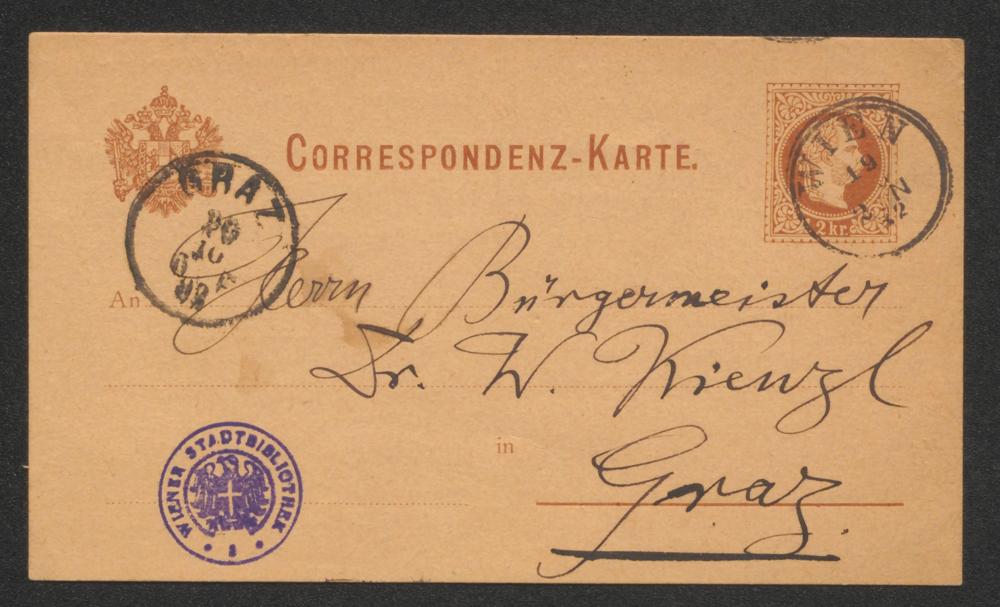 CORRESPONDENZ-KARTE.
2 kr.
WIEN
19
GRAZ
An Herrn Bürgermeister
Dr. W. Kienzl
in
Graz.
WIENER STADTBIBLIOTHEK